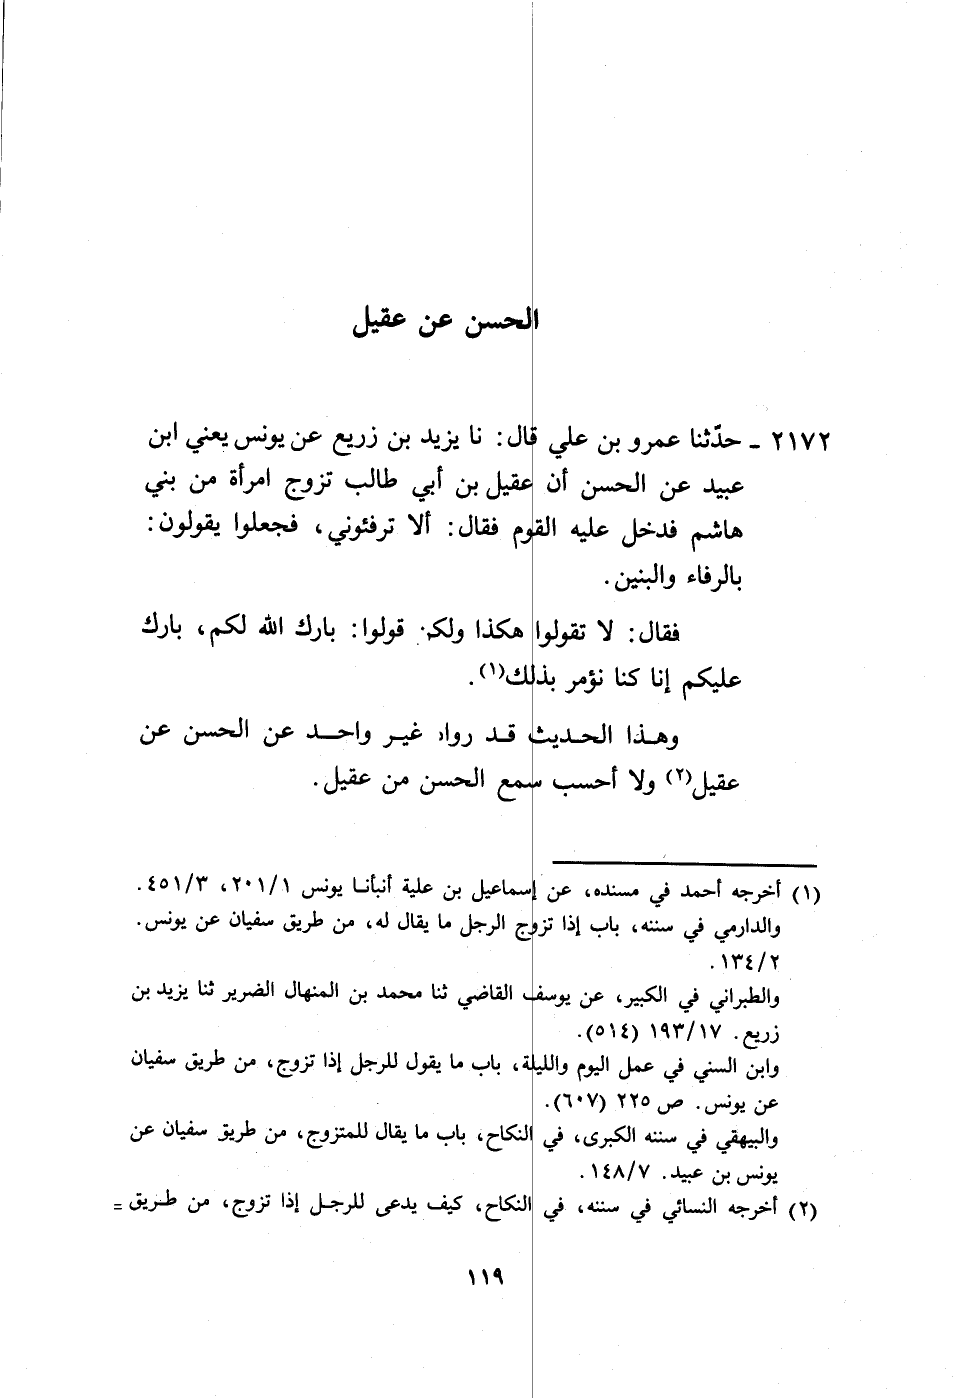 الحسن عن عقيل
٢١٧٢ ـ حدّثنا عمرو بن علي قال: نا يزيد بن زريع عن يونس يعني ابن
عبيد عن الحسن أن عقيل بن أبي طالب تزوج امرأة من بني
هاشم فدخل عليه القوم فقال: ألا ترفئوني، فجعلوا يقولون:
بالرفاء والبنين.
فقال: لا تقولوا هكذا ولكن قولوا: بارك الله لكم، بارك
عليكم إنا كنا نؤمر بذلك(١).
وهذا الحديث قد رواه غير واحد عن الحسن عن
عقيل(٢) ولا أحسب سمع الحسن من عقيل.
(١) أخرجه أحمد في مسنده، عن إسماعيل بن علية أنبأنا يونس ٢٠١/١، ٤٥١/٣.
والدارمي في سننه، باب إذا تزوج الرجل ما يقال له، من طريق سفيان عن يونس.
١٣٤/٢.
والطبراني في الكبير، عن يوسف القاضي ثنا محمد بن المنهال الضرير ثنا يزيد بن
زريع. ١٩٣/١٧ (٥١٤).
وابن السني في عمل اليوم والليلة، باب ما يقول للرجل إذا تزوج، من طريق سفيان
عن يونس. ص ٢٢٥ (٦٠٧).
والبيهقي في سننه الكبرى، في النكاح، باب ما يقال للمتزوج، من طريق سفيان عن
يونس بن عبيد. ١٤٨/٧.
(٢) أخرجه النسائي في سننه، في النكاح، كيف يدعى للرجل إذا تزوج، من طريق =
١١٩